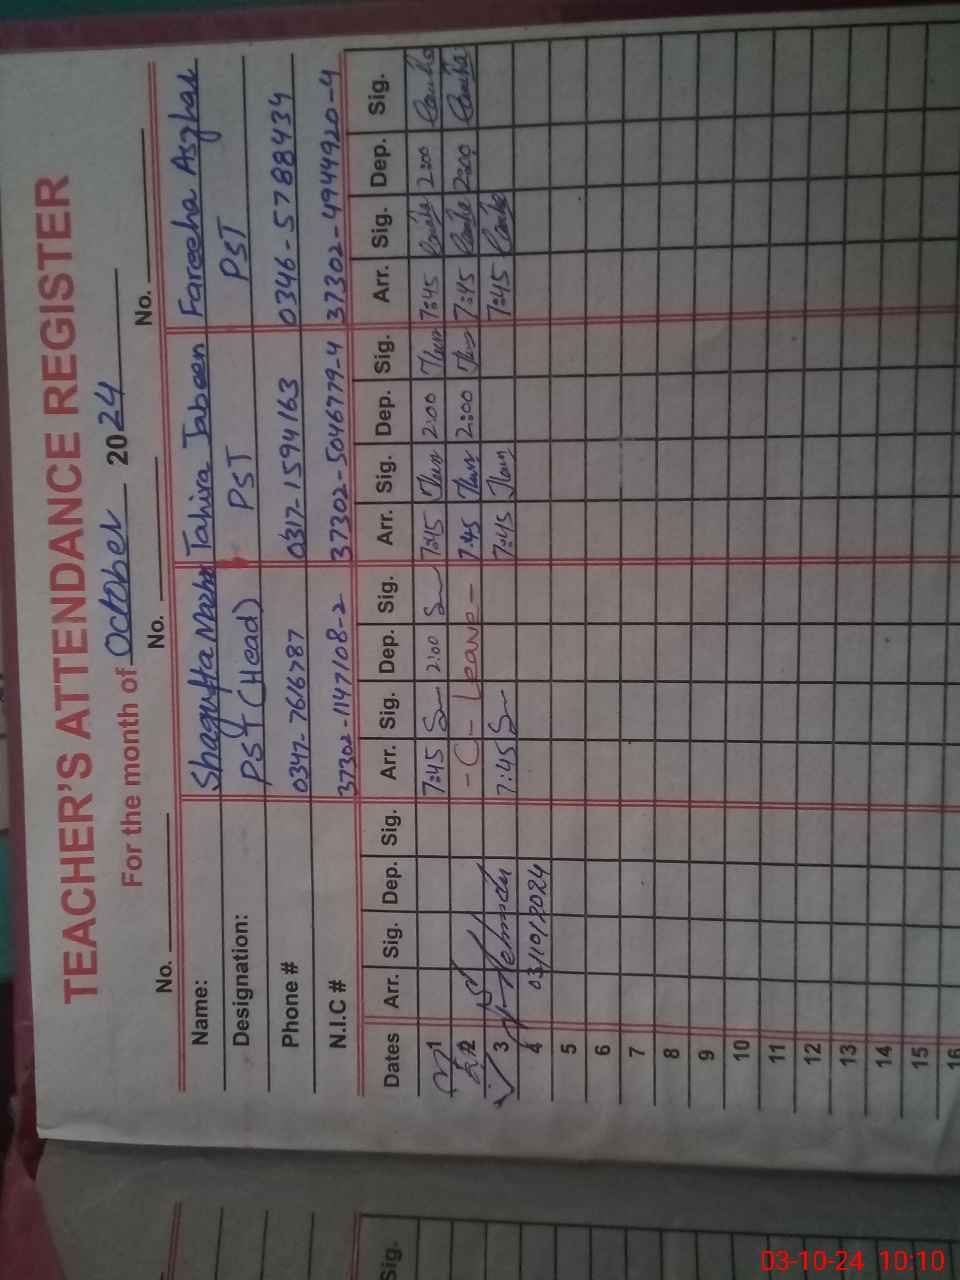 TEACHER'S ATTENDANCE REGISTER
For the month of October 2024
No. No. No. No.
Name: Shagufta Mazhar Tahira Jabeen Fareeha Asghar
Designation: PST (Head) PST PST
Phone # 0347-7616787 0317-1594163 0346-5788434
N.I.C # 37302-1147108-2 37302-5046779-4 37302-4944920-4
Dates Arr. Sig. Dep. Sig. Arr. Sig. Dep. Sig. Arr. Sig. Dep. Sig. Arr. Sig. Dep. Sig.
1 7:45 2:00 7:45 2:00 7:45 2:00
2 -C- Leave - 7:45 2:00 7:45 2:00
3 7:45 7:45 7:45
4 03/10/2024
5
6
7
8
9
10
11
12
13
14
15
16
Sig.
03-10-24 10:10